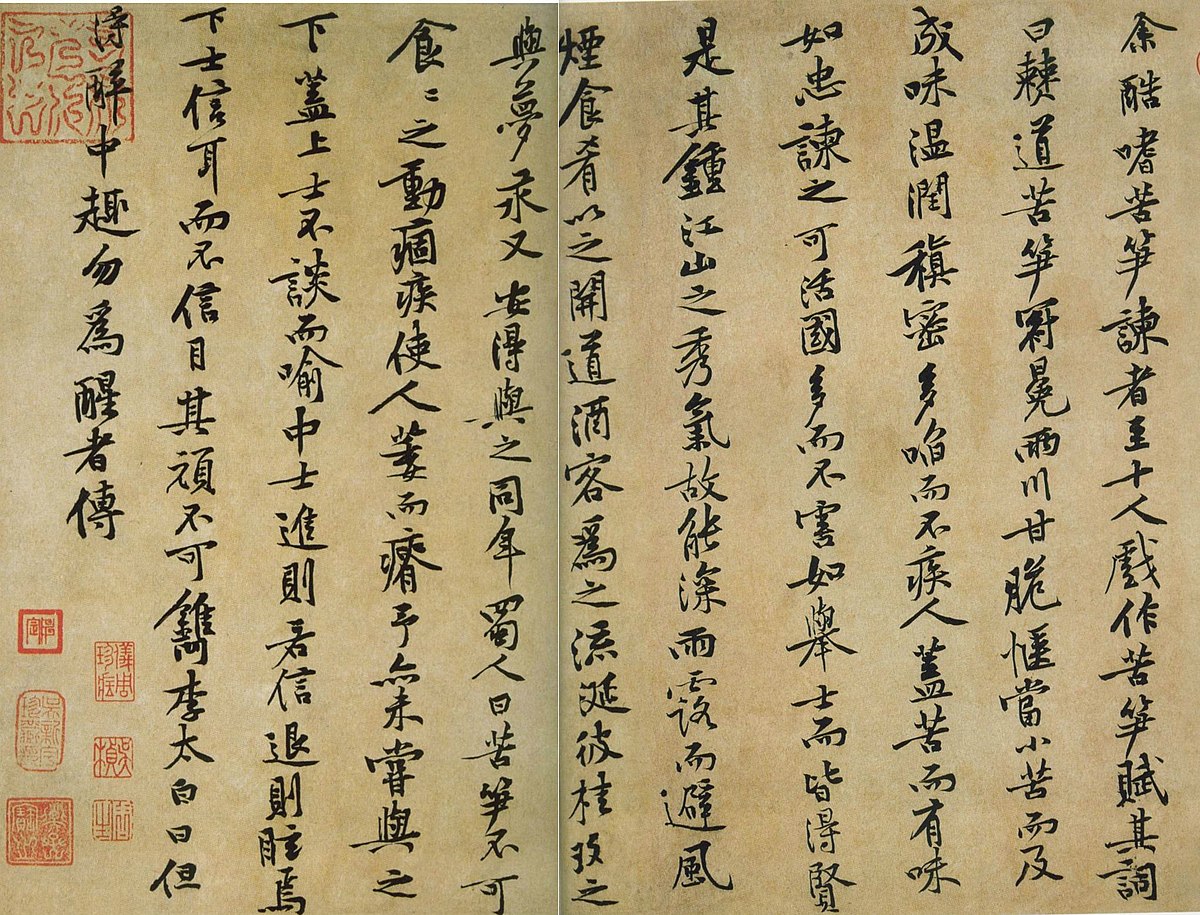 余酷嗜苦笋諫者至十人戲作苦笋賦其詞
曰僰道苦笋冠冕兩川甘脆愜當小苦而及
成味温潤稹密多啗而不疾人蓋苦而有味
如忠諫之可活國多而不害如舉士而皆得賢
是其鍾江山之秀氣故能深雨露而避風
煙食肴以之開道酒客爲之流涎彼桂玫之
與夢永又安得與之同年蜀人曰苦笋不可
食〻之動痼疾使人萎而瘠予亦未嘗與之
下蓋上士不談而喻中士進則若信退則眩焉
下士信耳而不信目其頑不可鐫李太白曰但
得醉中趣勿爲醒者傳